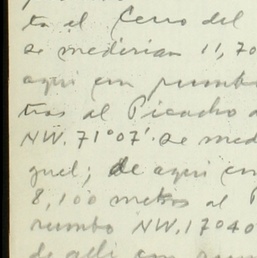 ta el Cerro del
se medirian 11,70
aqui con rumbo
tros al Picacho
NW. 71°07'. se med
guel; de aqui con
8,100 metros al P
rumbo NW. 17°40
de alli con rum